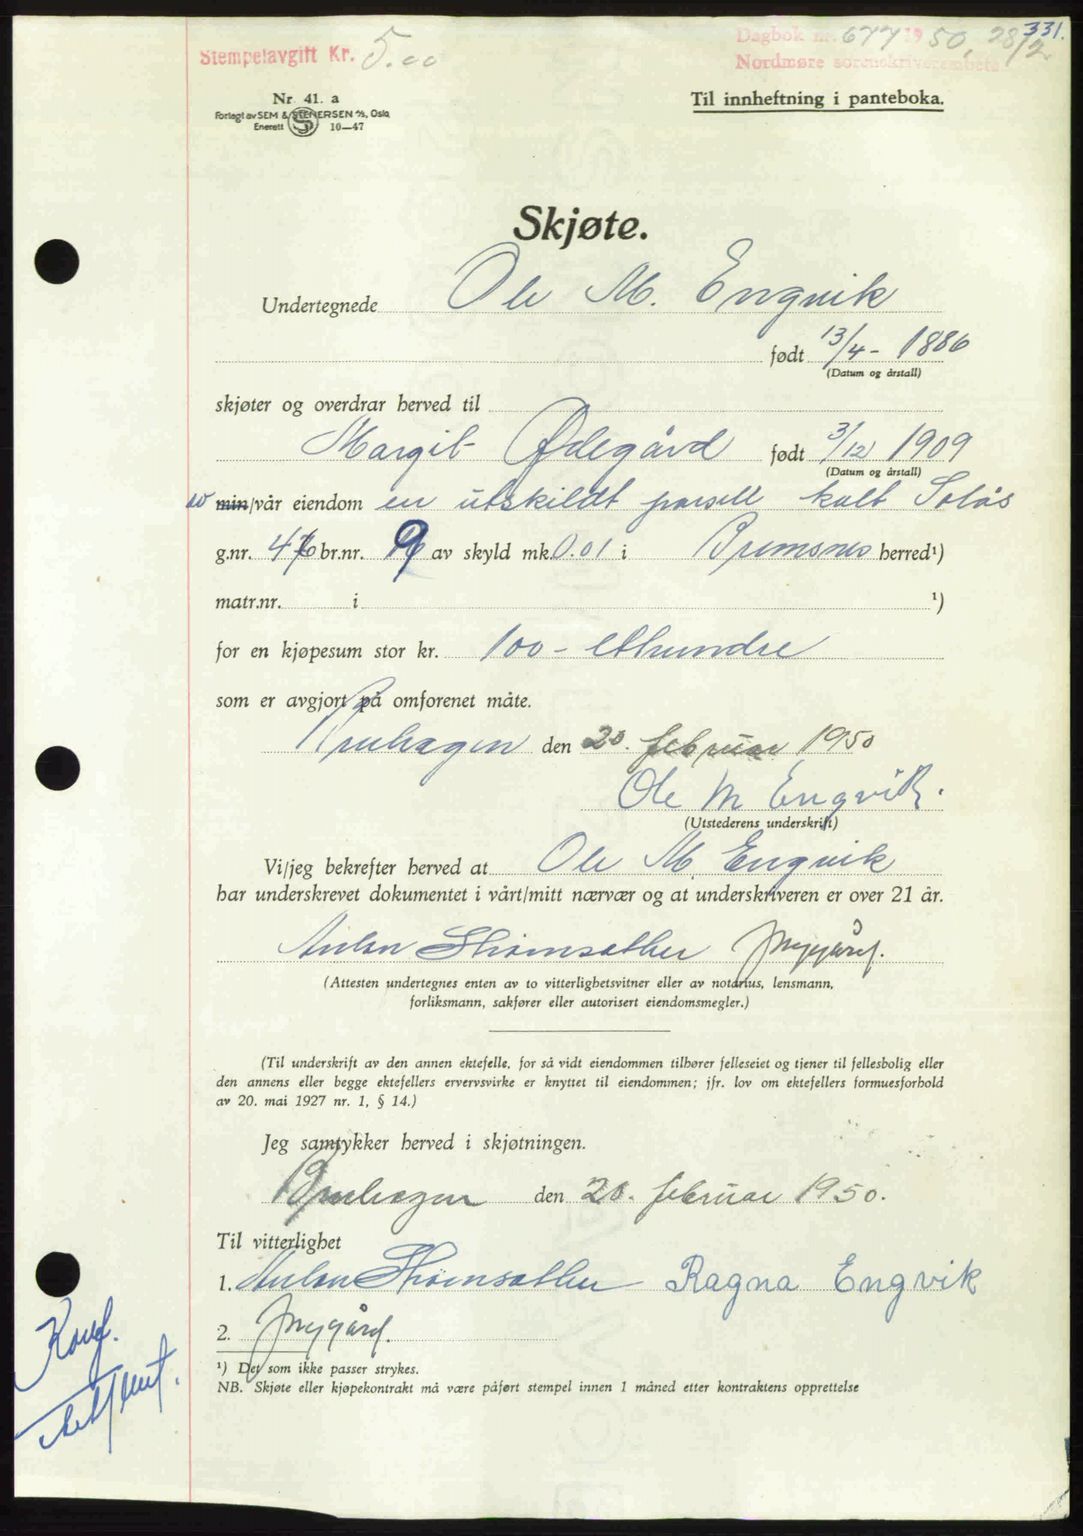 331.
Stempelavgift Kr. 5.00
Dagbok nr. 677 1950, 28/2
Nordmøre sorenskriverembete
Nr. 41. a
Forlagt av SEM & STENERSEN A/S, Oslo
Enerett S 10—47
Til innheftning i panteboka.
Skjøte.
Undertegnede Ole M. Engvik
født 13/4 - 1886
(Datum og årstall)
skjøter og overdrar herved til
Margit Ødegård født 3/12 1909
(Datum og årstall)
av min/vår eiendom en utskildt parsell kalt Solås
g.nr. 47 br.nr. 9 av skyld mk. 0.01 i Bremsnes herred¹)
matr.nr. i ¹)
for en kjøpesum stor kr. 100 - etthundre
som er avgjort på omforenet måte.
Bruhagen den 20. februar 1950
Ole M Engvik.
(Utstederens underskrift)
Vi/jeg bekrefter herved at Ole M. Engvik
har underskrevet dokumentet i vårt/mitt nærvær og at underskriveren er over 21 år.
Anton Strømsæther
(Attesten undertegnes enten av to vitterlighetsvitner eller av notarius, lensmann,
forliksmann, sakfører eller autorisert eiendomsmegler.)
(Til underskrift av den annen ektefelle, for så vidt eiendommen tilhører felleseiet og tjener til fellesbolig eller
den annens eller begge ektefellers ervervsvirke er knyttet til eiendommen; jfr. lov om ektefellers formuesforhold
av 20. mai 1927 nr. 1, § 14.)
Jeg samtykker herved i skjøtningen.
Bruhagen den 20. februar 1950.
Til vitterlighet
1. Anton Strømsæther Ragna Engvik
2.
¹) Det som ikke passer strykes.
NB. Skjøte eller kjøpekontrakt må være påført stempel innen 1 måned etter kontraktens opprettelse
Konf.